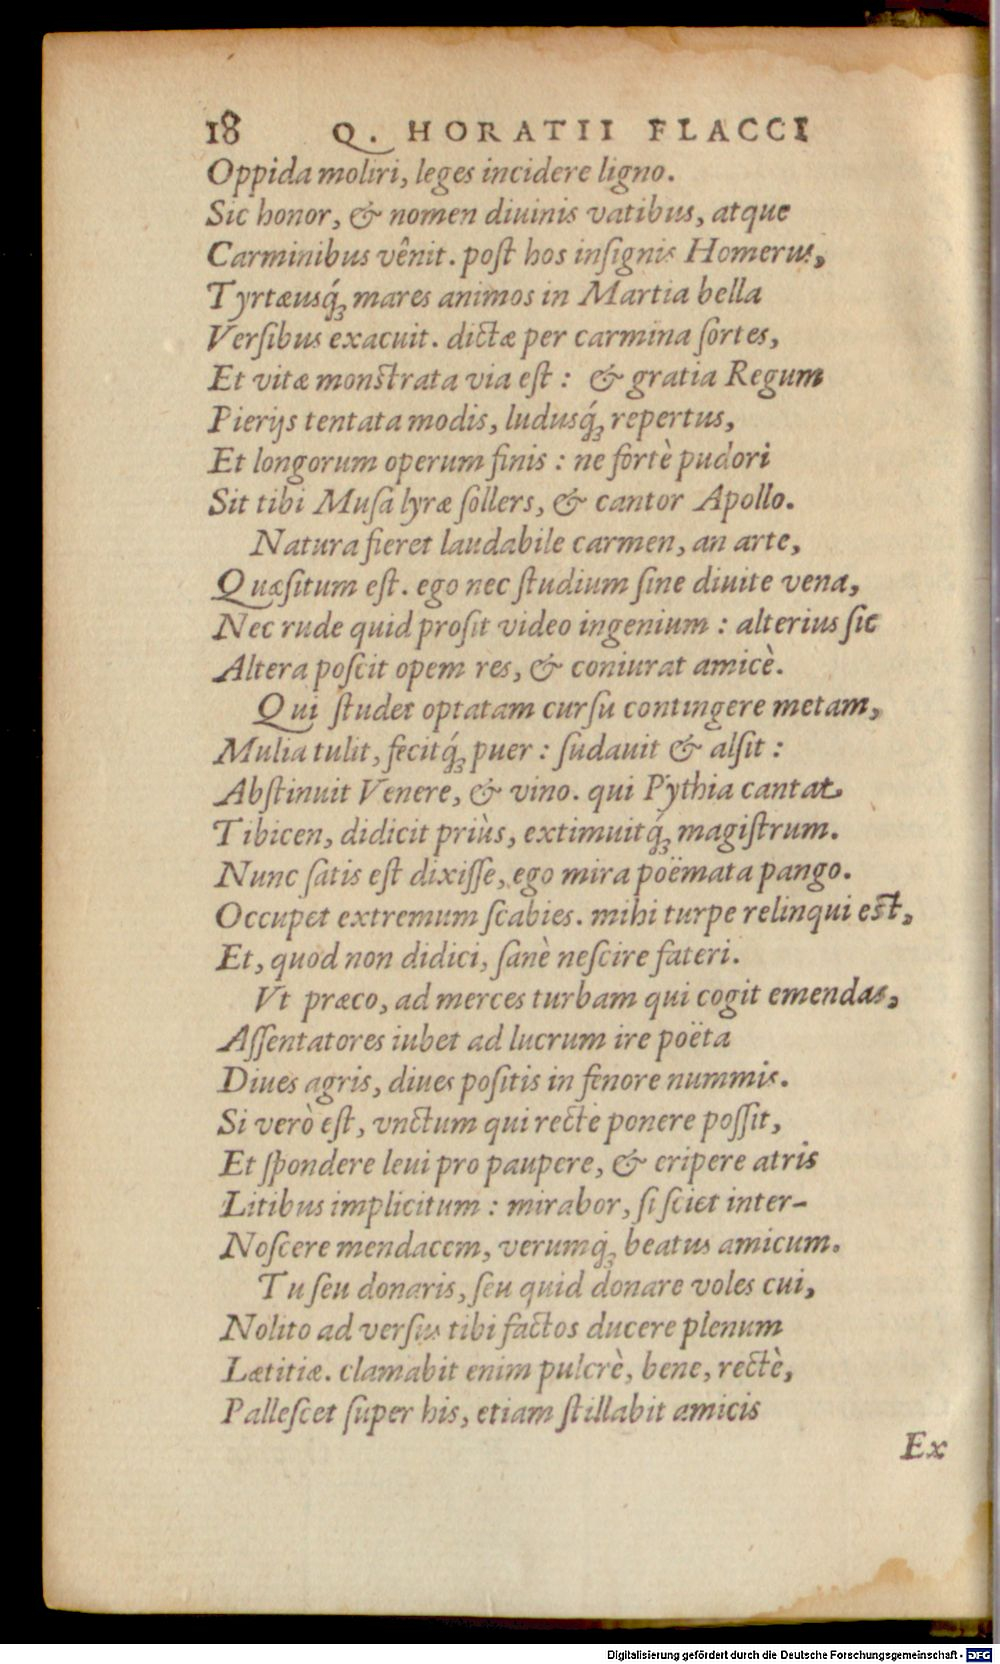 18 Q. HORATII FLACCI
Oppida moliri, leges incidere ligno.
Sic honor, & nomen diuinis vatibus, atque
Carminibus vênit. poſt hos inſignis Homerus,
Tyrtæusq́; mares animos in Martia bella
Verſibus exacuit. dictæ per carmina ſortes,
Et vitæ monſtrata via eſt: & gratia Regum
Pierijs tentata modis, ludusq́; repertus,
Et longorum operum finis: ne fortè pudori
Sit tibi Muſa lyræ ſollers, & cantor Apollo.
Natura fieret laudabile carmen, an arte,
Quæſitum eſt. ego nec ſtudium ſine diuite vena,
Nec rude quid proſit video ingenium: alterius ſic
Altera poſcit opem res, & coniurat amicè.
Qui ſtudet optatam curſu contingere metam,
Multa tulit, fecitq́; puer: ſudauit & alſit:
Abſtinuit Venere, & vino. qui Pythia cantat
Tibicen, didicit priùs, extimuitq́; magiſtrum.
Nunc ſatis eſt dixiſſe, ego mira poëmata pango.
Occupet extremum ſcabies. mihi turpe relinqui eſt,
Et, quod non didici, ſanè neſcire fateri.
Vt præco, ad merces turbam qui cogit emendas,
Aſſentatores iubet ad lucrum ire poëta
Diues agris, diues poſitis in fenore nummis.
Si verò eſt, vnctum qui rectè ponere poſſit,
Et ſpondere leui pro paupere, & eripere atris
Litibus implicitum: mirabor, ſi ſciet inter-
Noſcere mendacem, verumq́; beatus amicum.
Tu ſeu donaris, ſeu quid donare voles cui,
Nolito ad verſus tibi factos ducere plenum
Lætitiæ. clamabit enim pulcrè, bene, rectè,
Palleſcet ſuper his, etiam ſtillabit amicis
Ex
Digitalisierung gefördert durch die Deutsche Forschungsgemeinschaft - DFG